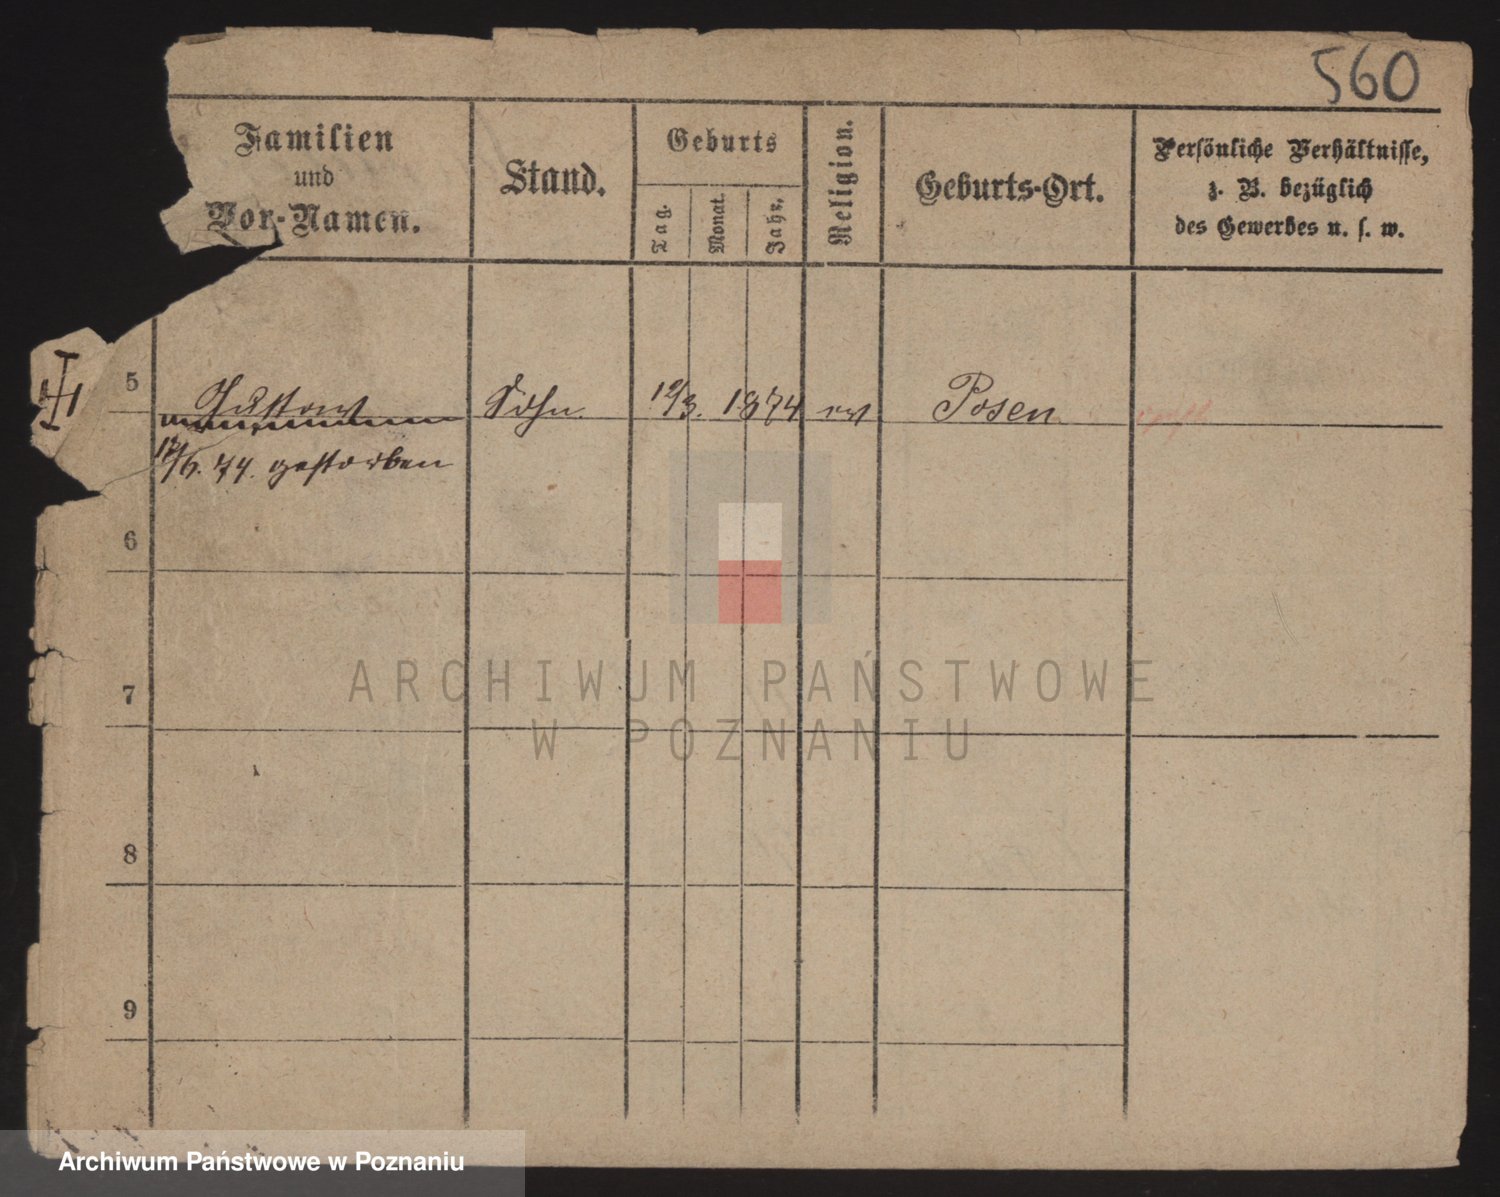 560
Familien
und
Vor-Namen.
Stand.
Geburts
Tag.
Monat.
Jahr.
Religion.
Geburts-Ort.
Persönliche Verhältnisse,
z. B. bezüglich
des Gewerbes u. s. w.
5 Gustav Sohn 1874 ev Posen
74. gestorben
6
7
8
9
ARCHIWUM PAŃSTWOWE
W POZNANIU
Archiwum Państwowe w Poznaniu